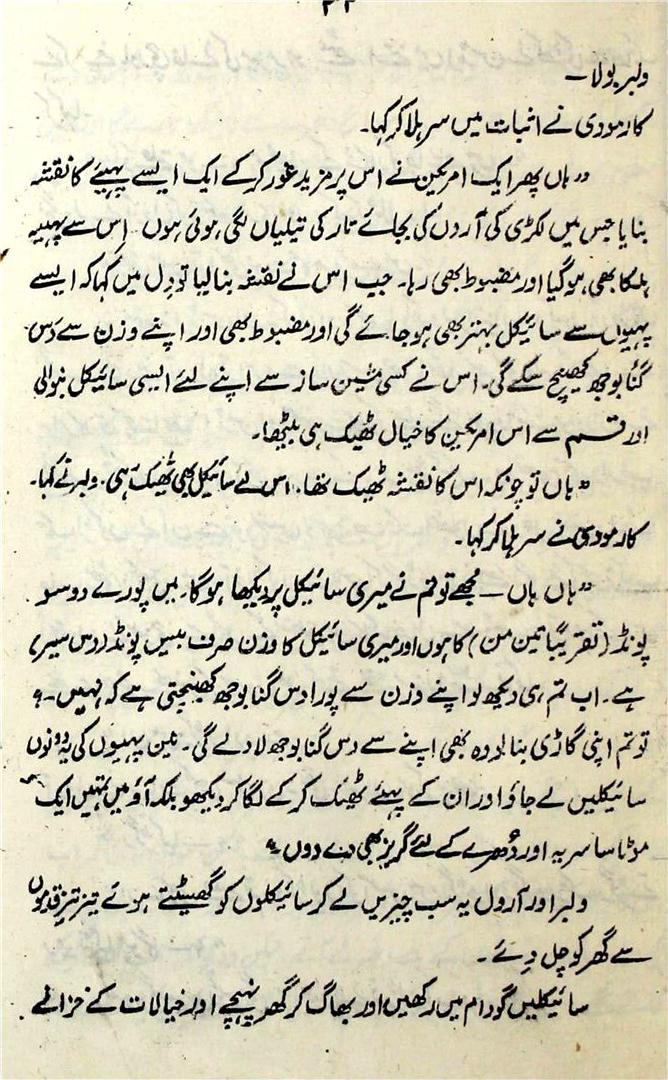 ۲۲
ولبر بولا —
کارمودی نے اثبات میں سر ہلا کر کہا۔
”ہاں پھر ایک امریکین نے اس پر مزید غور کر کے ایک ایسے پہیئے کا نقشہ
بنایا جس میں لکڑی کی آروں کی بجائے تار کی تیلیاں لگی ہوئی ہوں اِس سے پہیہ
ہلکا بھی ہو گیا اور مضبوط بھی رہا۔ جب اس نے نقشہ بنا لیا تو دِل میں کہا کہ ایسے
پہیوں سے سائیکل بہتر بھی ہو جائے گی اور مضبوط بھی اور اپنے وزن سے دَس
گنُا بوجھ کھینچ سکے گی۔ اس نے کسی مشین ساز سے اپنے لئے ایسی سائیکل بنوالی
اور قسم سے اس امریکین کا خیال ٹھیک ہی بیٹھا۔
”ہاں تو چونکہ اس کا نقشہ ٹھیک تھا۔ اس لئے سائیکل بھی ٹھیک رہی۔ ولبر نے کہا۔
کارمودی نے سر ہلا کر کہا۔
”ہاں ہاں — مجھے تو تم نے میری سائیکل پر دیکھا ہوگا۔ میں پورے دو سو
پونڈ (تقریباً تین من) کا ہوں اور میری سائیکل کا وزن صرف بیس پونڈ (دس سیر)
ہے۔ اب تم ہی دیکھ لو اپنے وزن سے پورا دس گنا بوجھ کھینچتی ہے کہ نہیں۔؟
تو تم اپنی گاڑی بنا لو وہ بھی اپنے سے دس گنا بوجھ لادے گی۔ تین پہیوں کی یہ دونوں
سائیکلیں لے جاؤ اور ان کے پہیئے ٹھیک کر کے لگا کر دیکھو بلکہ آؤ میں تمہیں ایک
موٹا سا سریہ اور دُھرے کے لئے گریز بھی دے دوں۔“
ولبر اور آرول یہ سب چیزیں لے کر سائیکلوں کو گھسیٹتے ہوئے تیز تیز قدموں
سے گھر کو چل دِئے۔
سائیکلیں گودام میں رکھیں اور بھاگ کر گھر پہنچے اور خیالات کے خزانے